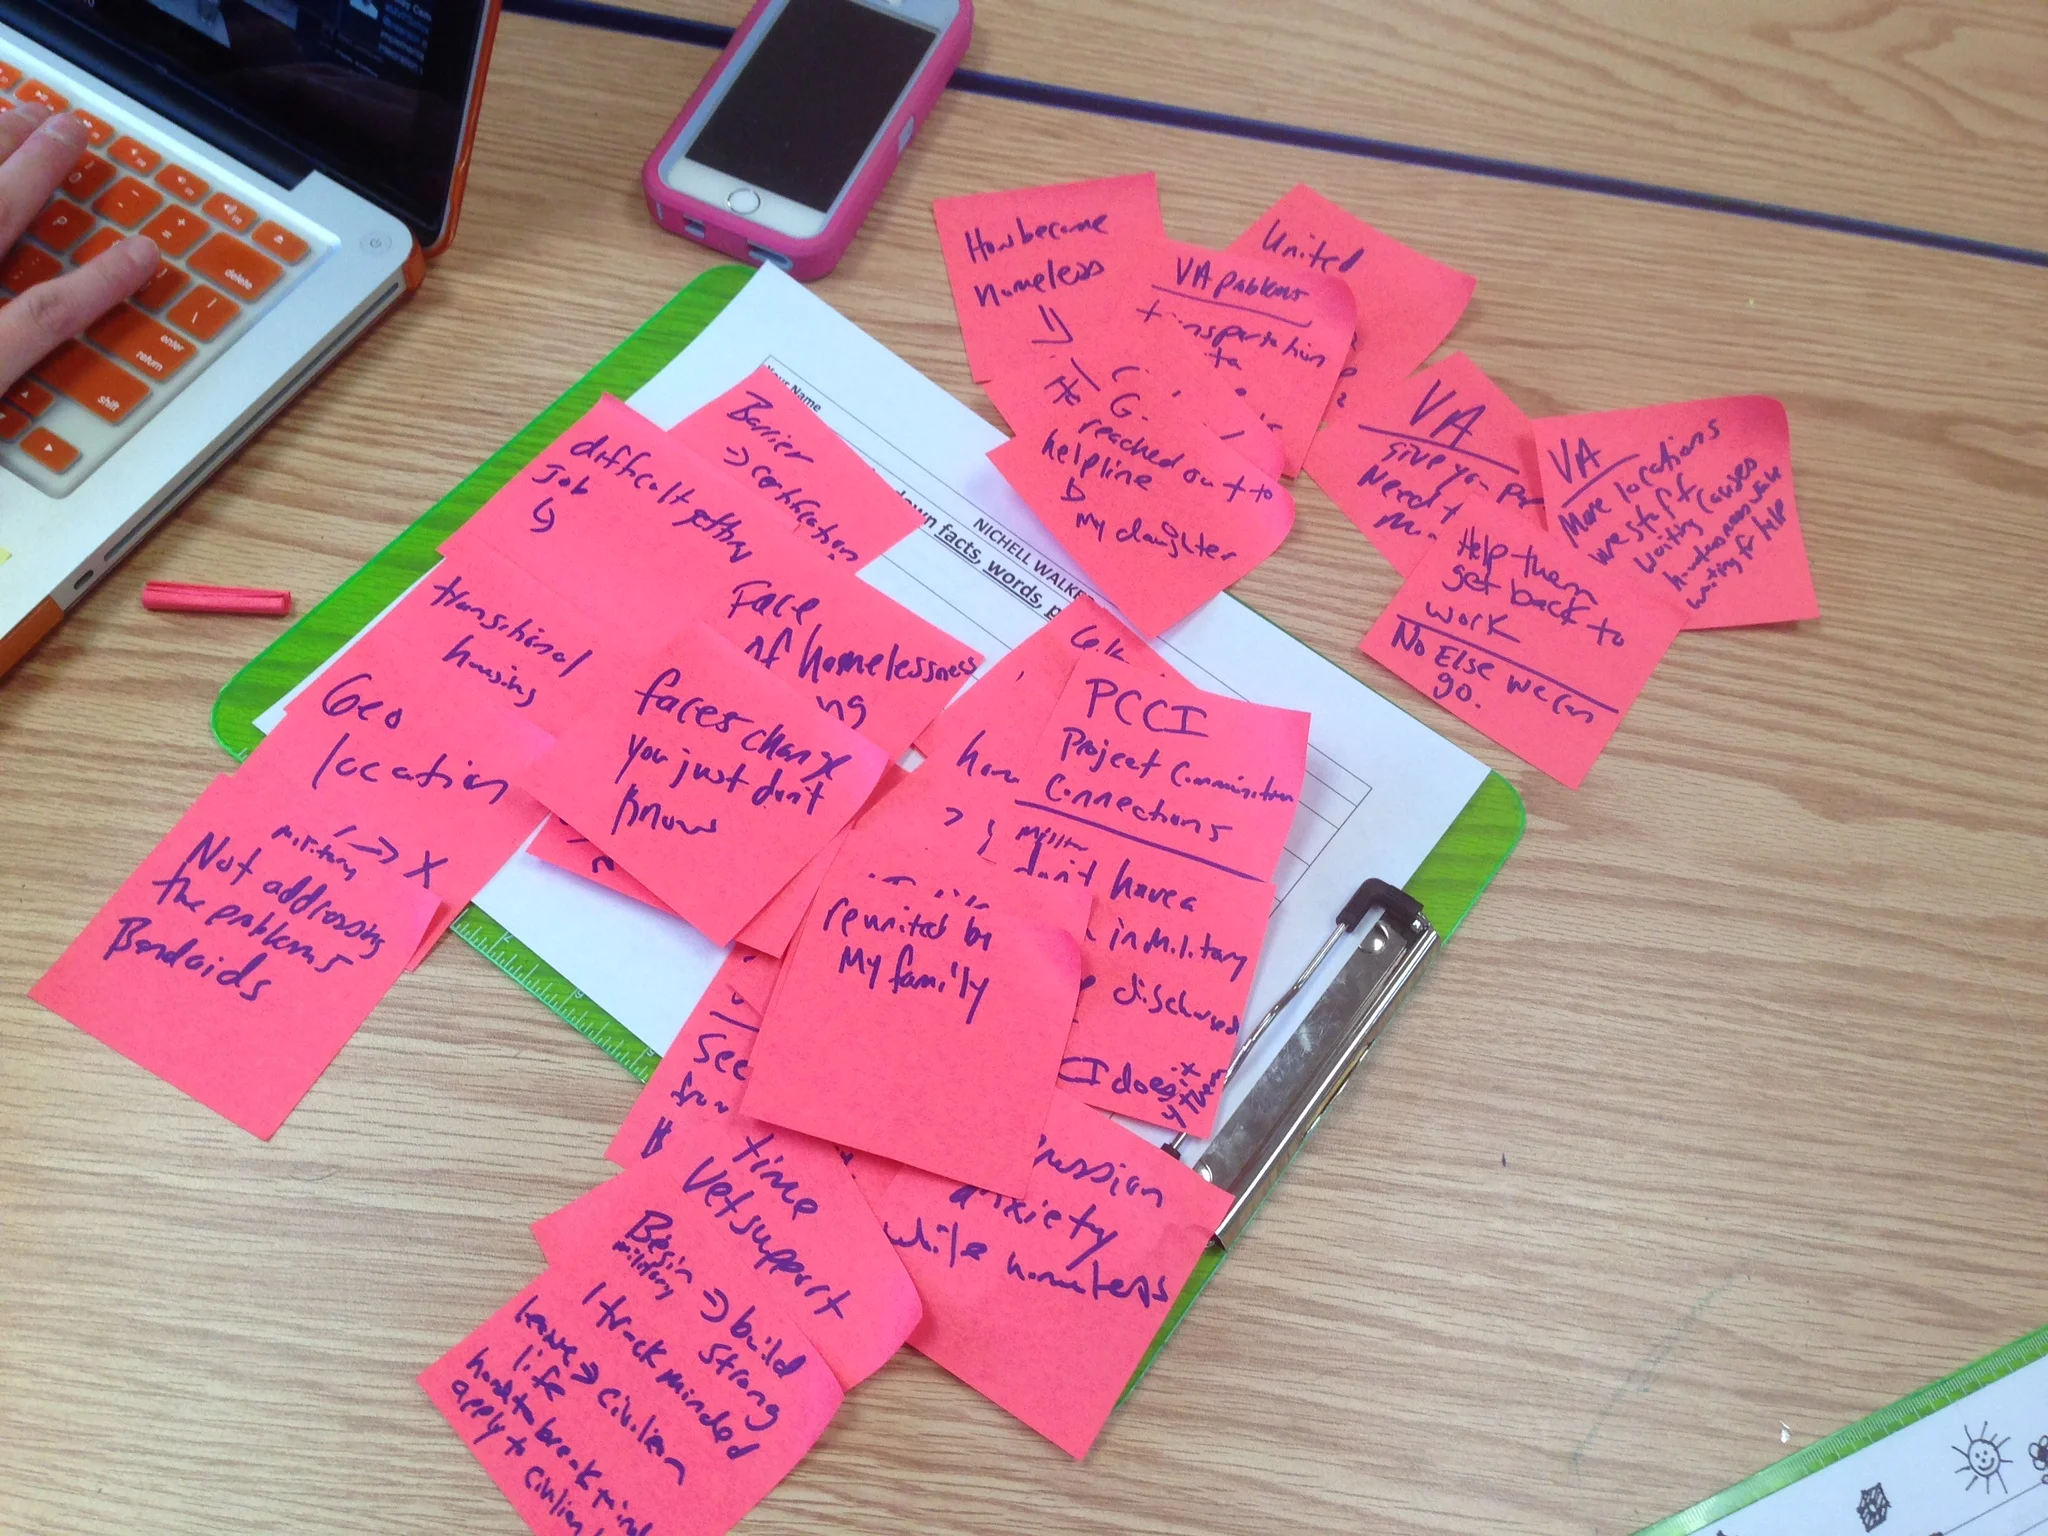 How become
homeless
United
VA problems
transportation
to
He
reached out to
helpline
My daughter
VA
give you
Need
VA
More locations
waiting causes
waiting for help
Help them
get back to
work
No Else we can
go.
Your Name
Barrier
→ certification
difficult getting
Job
↳
own facts, words, p
NICHELL WALKE
transitional
housing
Face
of homelessness
faces change
you just don't
know
Geo
location
military → X
Not addressing
the problems
Bandaids
PCCI
Project
Connections
don't have a
in Military
CI does
reunited by
My family
See
time
Vet support
anxiety
while homeless
Begin
military → build
strong
1 track minded
leave → civilian
life
hard to break
apply to civilian
delete
enter
return
shift